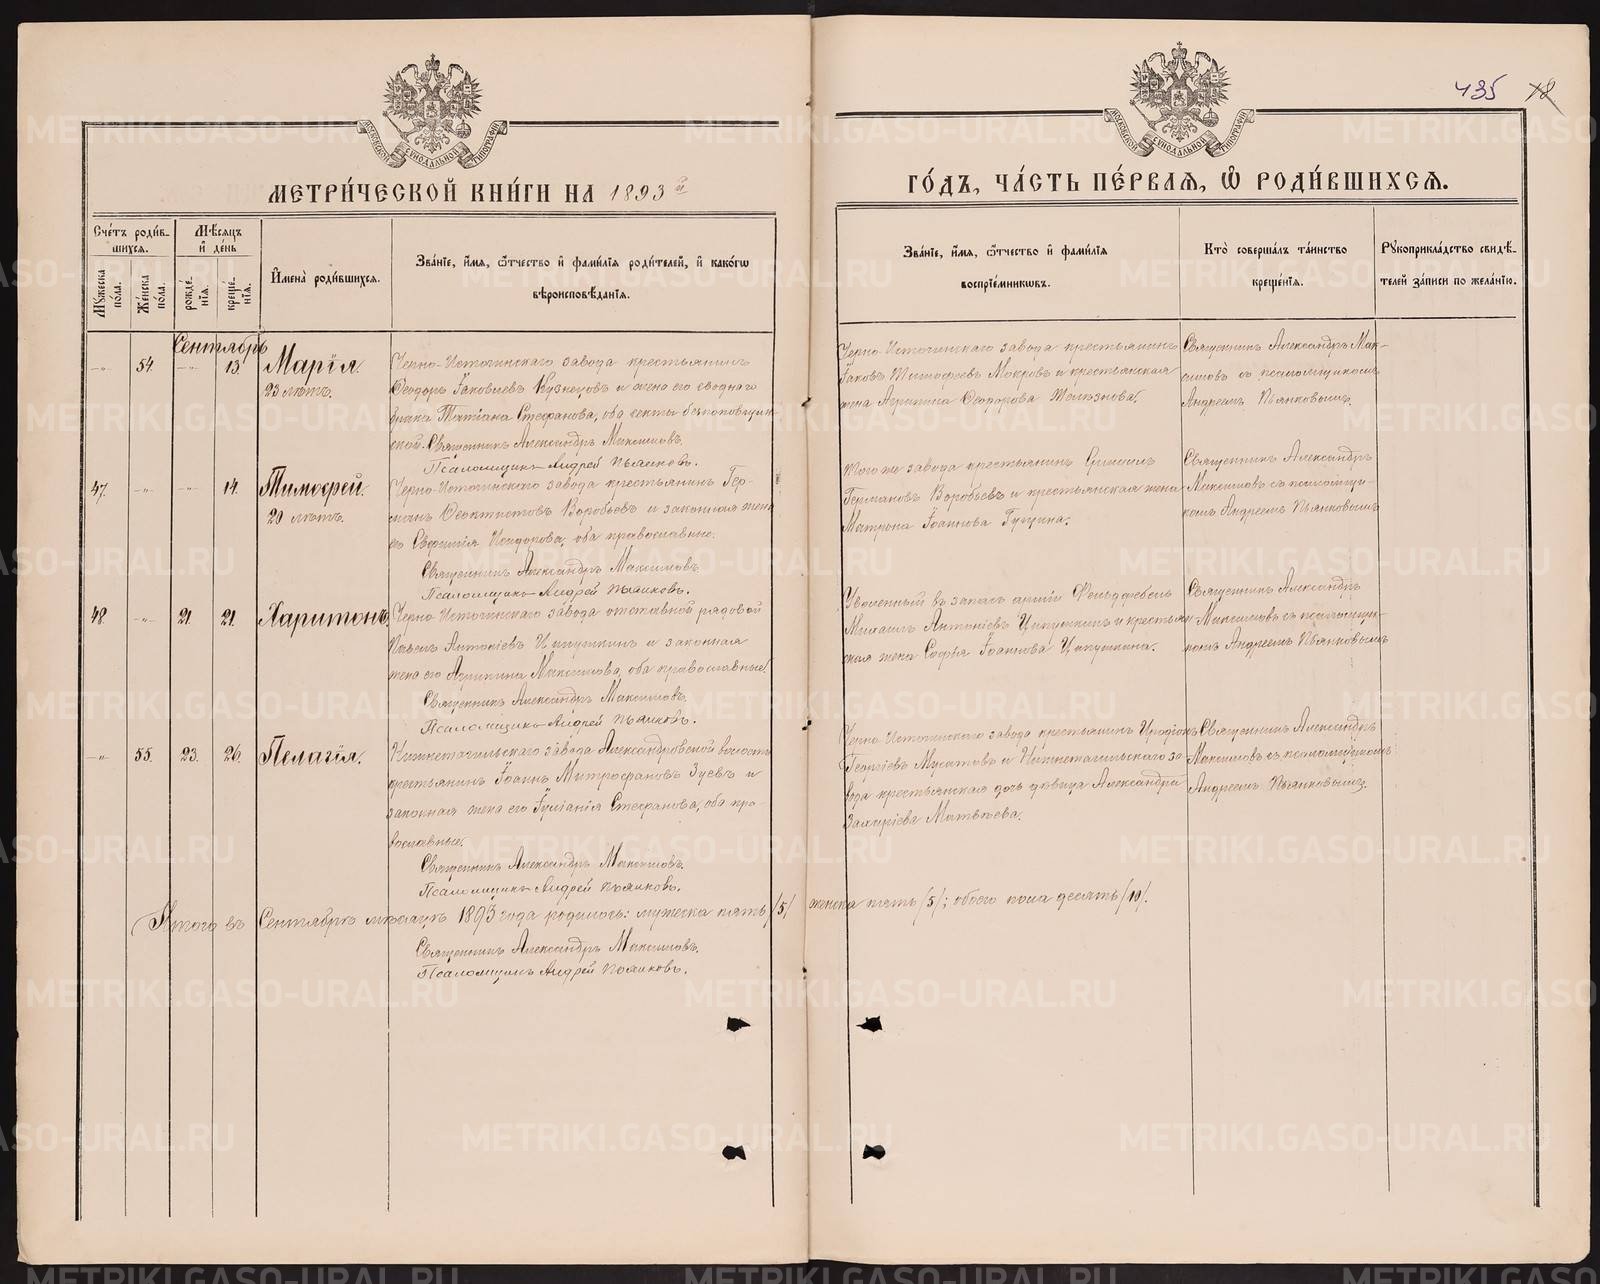 435 18
МЕТРИ́ЧЕСКОЙ КНИ́ГИ НА 1893й
ГО́ДЪ, ЧА́СТЬ ПЕ́РВАЯ, Ѿ РОДИ́ВШИХСЯ.
МОСКОВСКОЙ СИНОДАЛЬНОЙ ТИПОГРАФІИ
МОСКОВСКОЙ СИНОДАЛЬНОЙ ТИПОГРАФІИ
Сче́тъ роди́в-
шихся.
Мꙋ́жеска по́ла.
Же́нска по́ла.
Мѣ́сяцъ
и҆ де́нь
рожде́-
нїя.
креще́-
нїя.
И҆мена̀ роди́вшихся.
Зва́нїе, и҆́мя, ѻ҆́тчество и҆ фами́лїя роди́телей, и҆ како́гѡ
вѣроисповѣ́данїя.
Зва́нїе, и҆́мя, ѻ҆́тчество и҆ фами́лїя
воспрїе́мникѡвъ.
Кто̀ соверша́лъ та́инство
креще́нїя.
Рꙋкоприкла́дство свидѣ́-
телей за́писи по жела́нїю.
Сентябрь
-„- 54. -„- 13 Марія.
23 лѣтъ.
Черно-Источинскаго завода крестьянинъ
Ѳеодоръ Іаковлевъ Кузнецовъ и жена его сводного
брака Татіана Стефанова, оба секты безпоповщин-
ской. Священникъ Александръ Максимовъ.
Псаломщикъ Андрей Пьянковъ.
Черно-Источинскаго завода крестьянинъ
Іаковъ Тимофеевъ Мокровъ и крестьянская
жена Агрипина Ѳеодорова Желѣзнова.
Священникъ Александръ Мак-
симовъ съ псаломщикомъ
Андреемъ Пьянковымъ.
47. -„- -„- 14. Тимофей.
20 лѣтъ.
Черно-Источинскаго завода крестьянинъ Гер-
манъ Ѳеоктистовъ Воробьевъ и законная жена
его Евфимія Исидорова, оба православные.
Священникъ Александръ Максимовъ.
Псаломщикъ Андрей Пьянковъ.
того же завода крестьянинъ
Германовъ Воробьевъ и крестьянская жена
Матрона Іоаннова
Священникъ Александръ
Максимовъ съ псаломщи-
комъ Андреемъ Пьянковымъ
48 -„- 21. 21. Харитонъ.
Черно-Источинскаго завода отставной рядовой
Павелъ Антоніевъ Ципушкинъ и законная
жена его Агрипина Максимова, оба православные.
Священникъ Александръ Максимовъ.
Псаломщикъ Андрей Пьянковъ.
Уволенный въ запасъ арміи Фельдфебель
Михаилъ Антоніевъ Ципушкинъ и крестьян-
ская жена Софья Іоаннова Ципушкина.
Священникъ Александръ
Максимовъ съ псаломщи-
комъ Андреемъ Пьянковымъ
-„- 55. 23. 26. Пелагія.
Нижнетагильскаго завода Александровской волости
крестьянинъ Іоаннъ Митрофановъ Зуевъ и
законная жена его Іуліанія Стефанова, оба пра-
вославные.
Священникъ Александръ Максимовъ.
Псаломщикъ Андрей Пьянковъ.
Черно-Источинскаго завода крестьянинъ Иродіонъ
Георгіевъ Мусатовъ и Нижнетагильскаго за-
вода крестьянская дочь дѣвица Александра
Захаріева Матвѣева.
Священникъ Александръ
Максимовъ съ псаломщикомъ
Андреемъ Пьянковымъ.
Итого въ Сентябрѣ мѣсяцѣ 1893 года родилось: мужеска пять /5/ женска пять /5/; обоего пола десять /10/.
Священникъ Александръ Максимовъ.
Псаломщикъ Андрей Пьянковъ.
METRIKI.GASO-URAL.RU